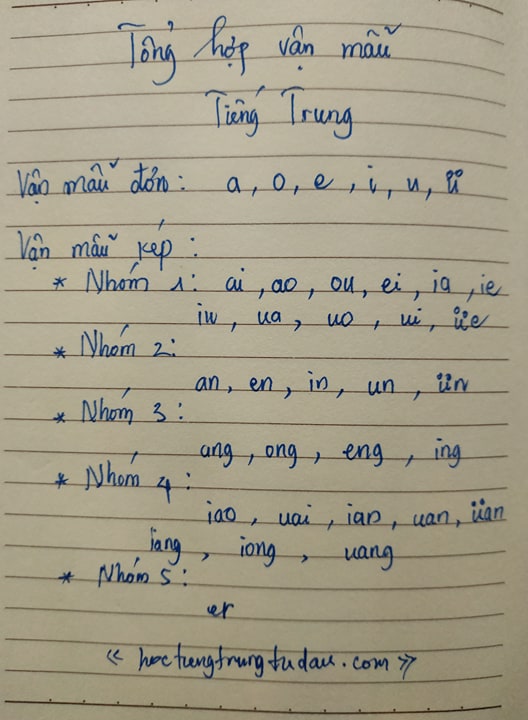 Tổng hợp vận mẫu
Tiếng Trung
Vận mẫu đơn: a, o, e, i, u, ü
Vận mẫu kép:
* Nhóm 1: ai, ao, ou, ei, ia, ie
iu, ua, uo, ui, üe
* Nhóm 2:
an, en, in, un, ün
* Nhóm 3:
ang, ong, eng, ing
* Nhóm 4:
iao, uai, ian, uan, üan
iang, iong, uang
* Nhóm 5:
er
« hoctiengtrungtudau.com »